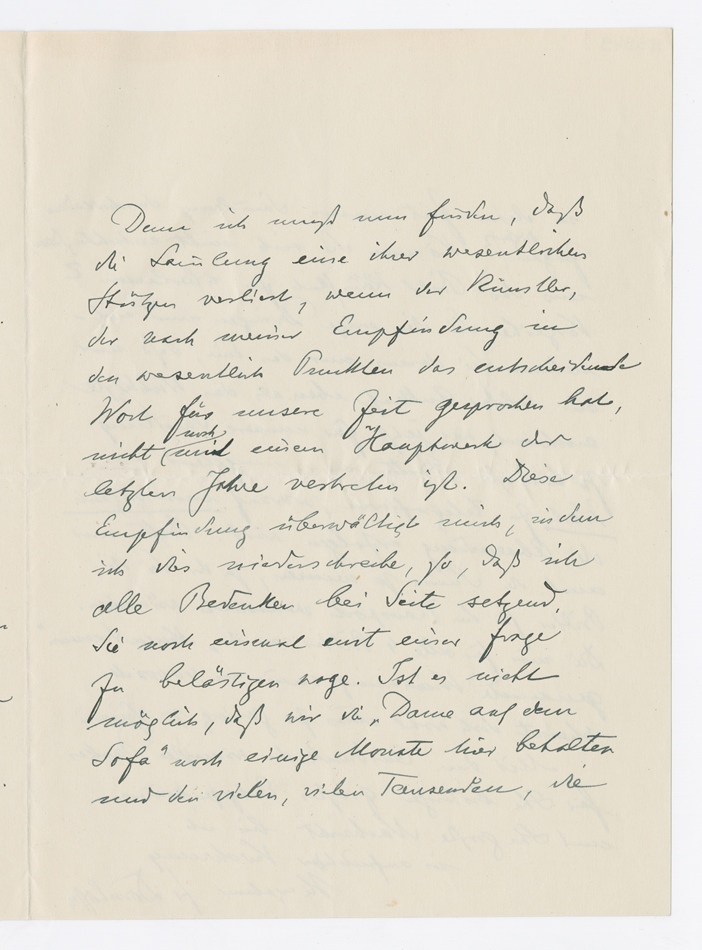 Denn ich muß nun finden, daß
die Samlung eine ihrer wesentlichen
Stützen verliert, wenn der Künstler,
der nach meiner Empfindung in
den wesentlich Punkten das entscheidende
Wort für unsere Zeit gesprochen hat,
nicht noch mit einem Hauptwerk der
letzten Jahre vertreten ist. Diese
Empfindung überwältigt mich, indem
ich dies niederschreibe, so, daß ich
alle Bedenken bei Seite setzend,
Sie noch einmal mit einer Frage
zu belästigen wage. Ist es nicht
möglich, daß wir die „Dame auf dem
Sofa“ noch einige Monate hier behalten
und den vielen, vielen Tausenden, die